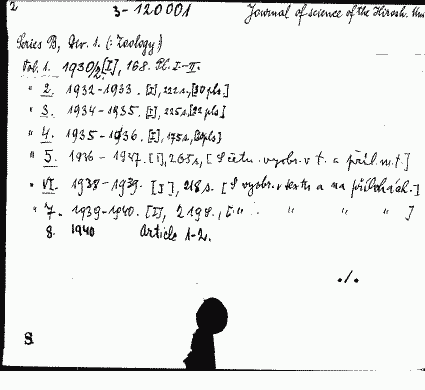 2 3-120001 Journal of science of the Hirosh. Uni
Series B, Div. 1. (: Zoology)
Vol. 1. 1930/2 [I], 168. Pl. I-II.
" 2. 1932-1933. [I], 222 s., [30 pls.]
" 3. 1934-1935. [I], 225 s. [22 pls]
" 4. 1935-1936. [I], 175 s.,
" 5. 1936-1937. [I], 265 s., [S četn. vyobr. v t. a příl. m. t.]
" VI. 1938-1939. [I], 218 s. [S vyobr. v textu a na přílohách.]
" 7. 1939-1940. [I], 219 s., [" " " " ]
8. 1940 Article 1-2.
./.
S